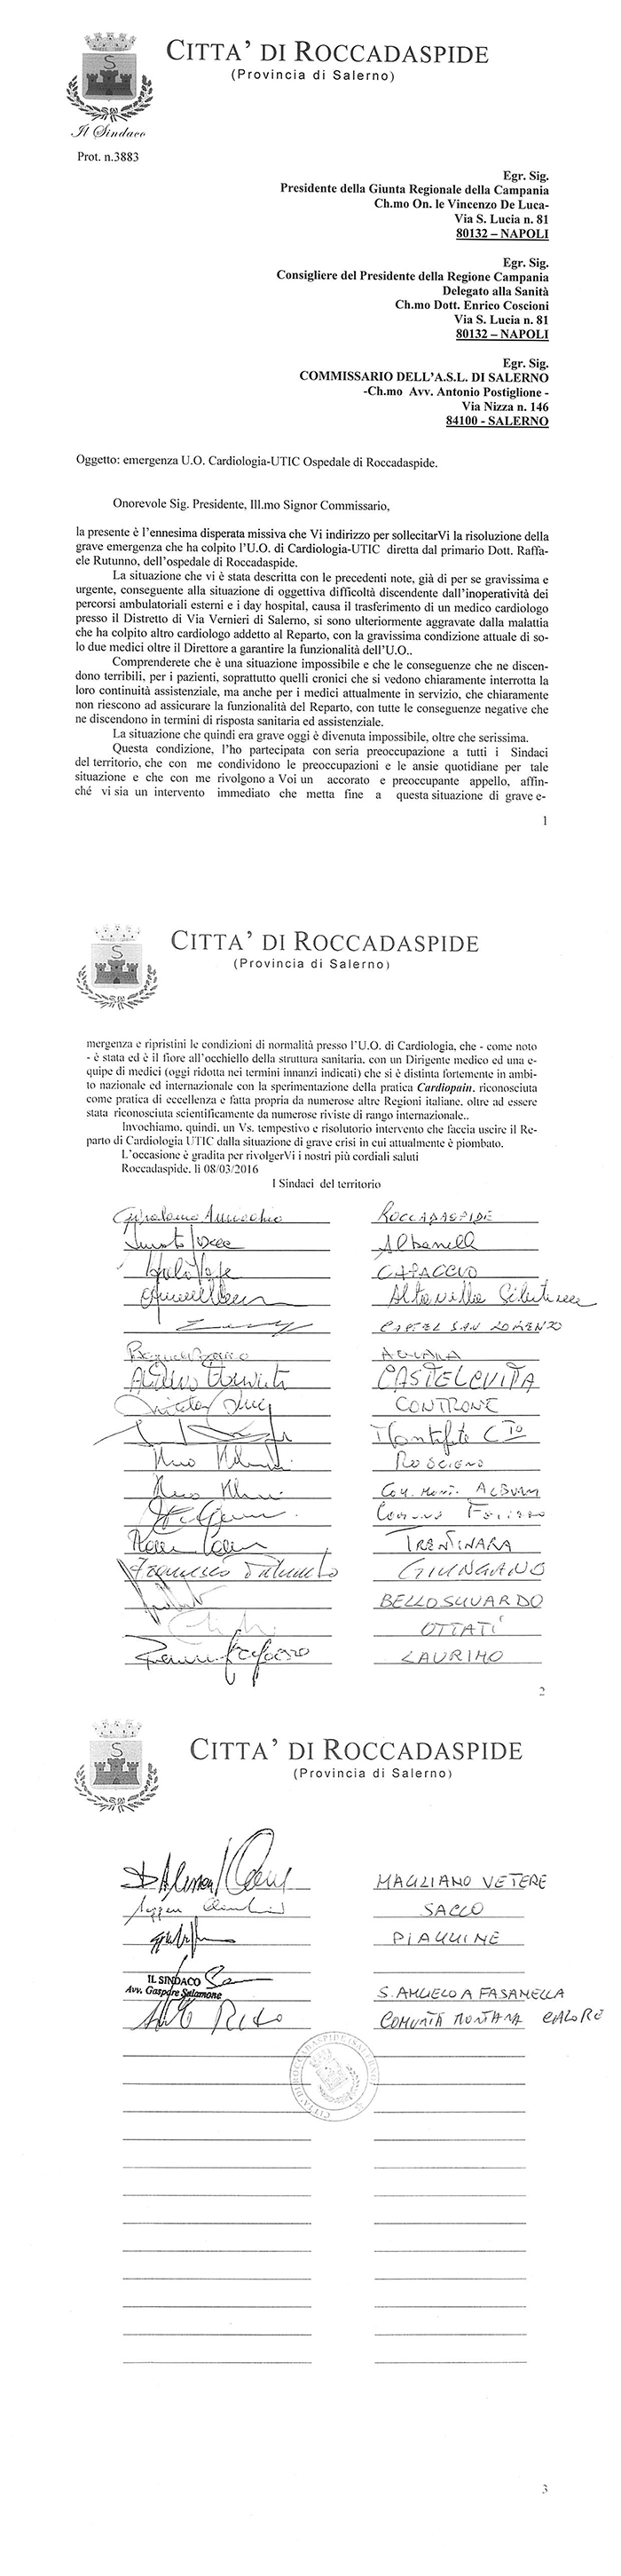 CITTA' DI ROCCADASPIDE
(Provincia di Salerno)
S
Il Sindaco
Prot. n.3883
Egr. Sig.
Presidente della Giunta Regionale della Campania
Ch.mo On. le Vincenzo De Luca-
Via S. Lucia n. 81
80132 – NAPOLI
Egr. Sig.
Consigliere del Presidente della Regione Campania
Delegato alla Sanità
Ch.mo Dott. Enrico Coscioni
Via S. Lucia n. 81
80132 – NAPOLI
Egr. Sig.
COMMISSARIO DELL'A.S.L. DI SALERNO
-Ch.mo Avv. Antonio Postiglione -
Via Nizza n. 146
84100 - SALERNO
Oggetto: emergenza U.O. Cardiologia-UTIC Ospedale di Roccadaspide.
Onorevole Sig. Presidente, Ill.mo Signor Commissario,
la presente è l'ennesima disperata missiva che Vi indirizzo per sollecitarVi la risoluzione della
grave emergenza che ha colpito l'U.O. di Cardiologia-UTIC diretta dal primario Dott. Raffa-
ele Rutunno, dell'ospedale di Roccadaspide.
La situazione che vi è stata descritta con le precedenti note, già di per se gravissima e
urgente, conseguente alla situazione di oggettiva difficoltà discendente dall'inoperatività dei
percorsi ambulatoriali esterni e i day hospital, causa il trasferimento di un medico cardiologo
presso il Distretto di Via Vernieri di Salerno, si sono ulteriormente aggravate dalla malattia
che ha colpito altro cardiologo addetto al Reparto, con la gravissima condizione attuale di so-
lo due medici oltre il Direttore a garantire la funzionalità dell'U.O..
Comprenderete che è una situazione impossibile e che le conseguenze che ne discen-
dono terribili, per i pazienti, soprattutto quelli cronici che si vedono chiaramente interrotta la
loro continuità assistenziale, ma anche per i medici attualmente in servizio, che chiaramente
non riescono ad assicurare la funzionalità del Reparto, con tutte le conseguenze negative che
ne discendono in termini di risposta sanitaria ed assistenziale.
La situazione che quindi era grave oggi è divenuta impossibile, oltre che serissima.
Questa condizione, l'ho partecipata con seria preoccupazione a tutti i Sindaci
del territorio, che con me condividono le preoccupazioni e le ansie quotidiane per tale
situazione e che con me rivolgono a Voi un accorato e preoccupante appello, affin-
ché vi sia un intervento immediato che metta fine a questa situazione di grave e-
1
CITTA' DI ROCCADASPIDE
(Provincia di Salerno)
S
mergenza e ripristini le condizioni di normalità presso l'U.O. di Cardiologia, che - come noto
- è stata ed è il fiore all'occhiello della struttura sanitaria, con un Dirigente medico ed una e-
quipe di medici (oggi ridotta nei termini innanzi indicati) che si è distinta fortemente in ambi-
to nazionale ed internazionale con la sperimentazione della pratica Cardiopain, riconosciuta
come pratica di eccellenza e fatta propria da numerose altre Regioni italiane, oltre ad essere
stata riconosciuta scientificamente da numerose riviste di rango internazionale..
Invochiamo, quindi, un Vs. tempestivo e risolutorio intervento che faccia uscire il Re-
parto di Cardiologia UTIC dalla situazione di grave crisi in cui attualmente è piombato.
L'occasione è gradita per rivolgerVi i nostri più cordiali saluti
Roccadaspide, lì 08/03/2016
I Sindaci del territorio
Girolamo Auricchio ROCCADASPIDE
Albanella
CAPACCIO
Altavilla Silentina
CASTEL SAN LORENZO
AQUARA
CASTELCIVITA
CONTRONE
Roscigno
Com. Mont. ALBURNI
Comune
TRENTINARA
Francesco Palumbo GIUNGANO
BELLOSGUARDO
OTTATI
LAURINO
2
CITTA' DI ROCCADASPIDE
(Provincia di Salerno)
S
MAGLIANO VETERE
SACCO
PIAGGINE
IL SINDACO
Avv. Gaspare Salamone
S. ANGELO A FASANELLA
COMUNITÀ MONTANA CALORE
CITTÀ DI ROCCADASPIDE (SALERNO)
3